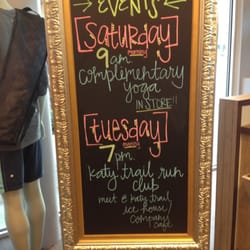 EVENTS
[Saturday]
9am
complimentary
yoga
IN STORE!!
[tuesday]
7pm.
katy trail run
club
meet @ katy trail
ice house
company
cafe